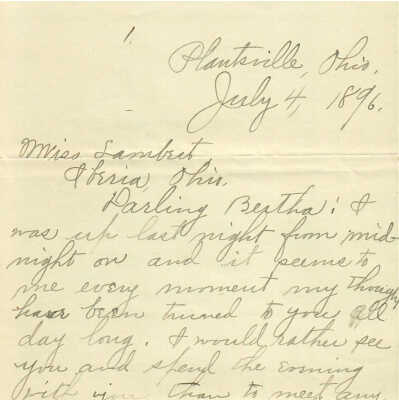 1.
Plantsville, Ohio.
July 4, 1896.
Miss Lambert,
Iberia, Ohio.
Darling Bertha: I
was up last night from mid-
night on and it seems to
me every moment my thoughts
have been turned to you all
day long. I would rather see
you and spend the evening
with you than to meet any